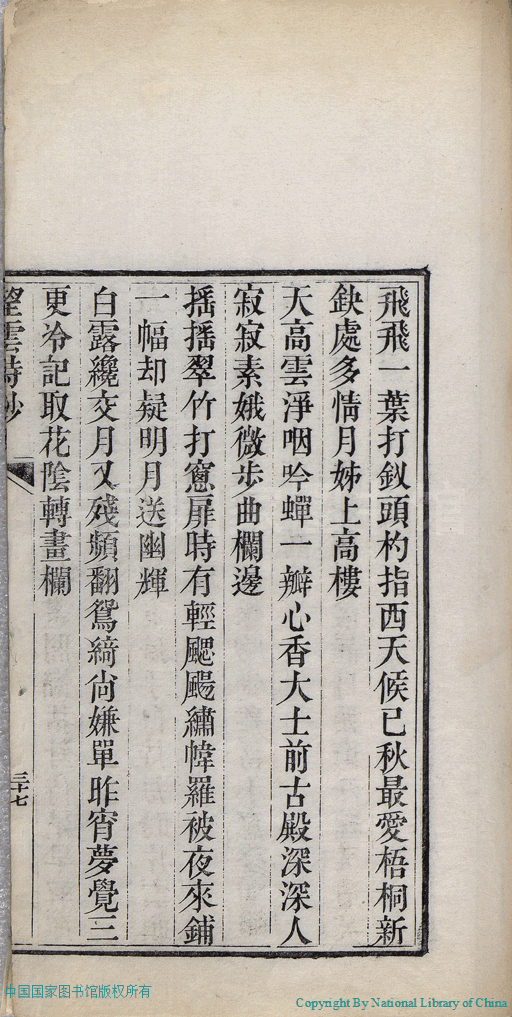 飛飛一葉打釵頭杓指西天候已秋最愛梧桐新
鈌處多情月姊上高樓
天高雲淨咽吟蟬一瓣心香大士前古殿深深人
寂寂素娥微步曲欄邊
搖搖翠竹打窻扉時有輕颸颺繡幃羅被夜來鋪
一幅却疑明月送幽輝
白露纔交月又殘頻翻鴛綺尙嫌單昨宵夢覺三
更冷記取花陰轉畫欄
望雲詩鈔
三十七
中国国家图书馆版权所有
Copyright By National Library of China